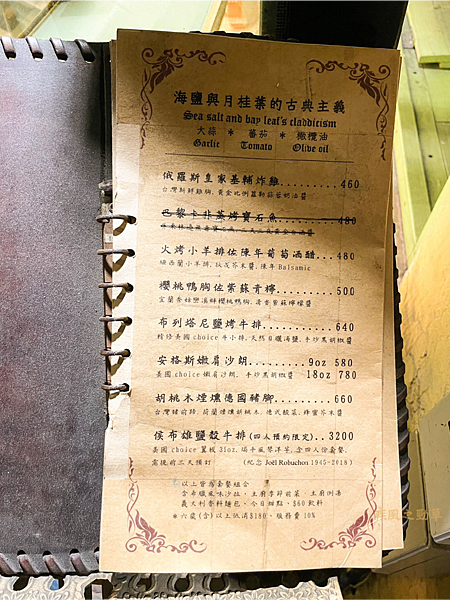 海鹽與月桂葉的古典主義
Sea salt and bay leaf's claddicism
大蒜 * 蕃茄 * 橄欖油
Garlic Tomato Olive oil
俄羅斯皇家基輔炸雞..........460
台灣新鮮雞胸,黃金比例蘿勒蒜蓉奶油醬
巴黎卡非蒸烤寶石魚..........480
火烤小羊排佐陳年葡萄酒醋...480
紐西蘭小羊排,玖茂芥末醬,陳年Balsamic
櫻桃鴨胸佐紫蘇青檸..........500
宜蘭香妃巒溪鮮櫻桃鴨胸,清香紫蘇檸檬醬
布列塔尼鹽烤牛排............640
精修美國choice牛小排,天然日曬海鹽,手炒黑胡椒醬
安格斯嫩肩沙朗.........9oz 580
美國choice嫩肩沙朗,手炒黑胡椒醬 18oz 780
胡桃木煙燻德國豬腳..........660
台灣豬前腳,荷蘭煙燻胡桃木,德式酸菜,蜂蜜芥末醬
侯布雄鹽殼牛排(四人預約限定)..3200
美國choice翼板31oz,焗千風琴洋芋,含四人份套餐,
需提前三天預訂 (紀念 Joël Robuchon 1945-2018)
以上皆為套餐組合
含希臘風味沙拉,主廚季節前菜,主廚例湯
義大利香料麵包,今日甜點,$60飲料
*六歲(含)以上低消$180,服務費10%